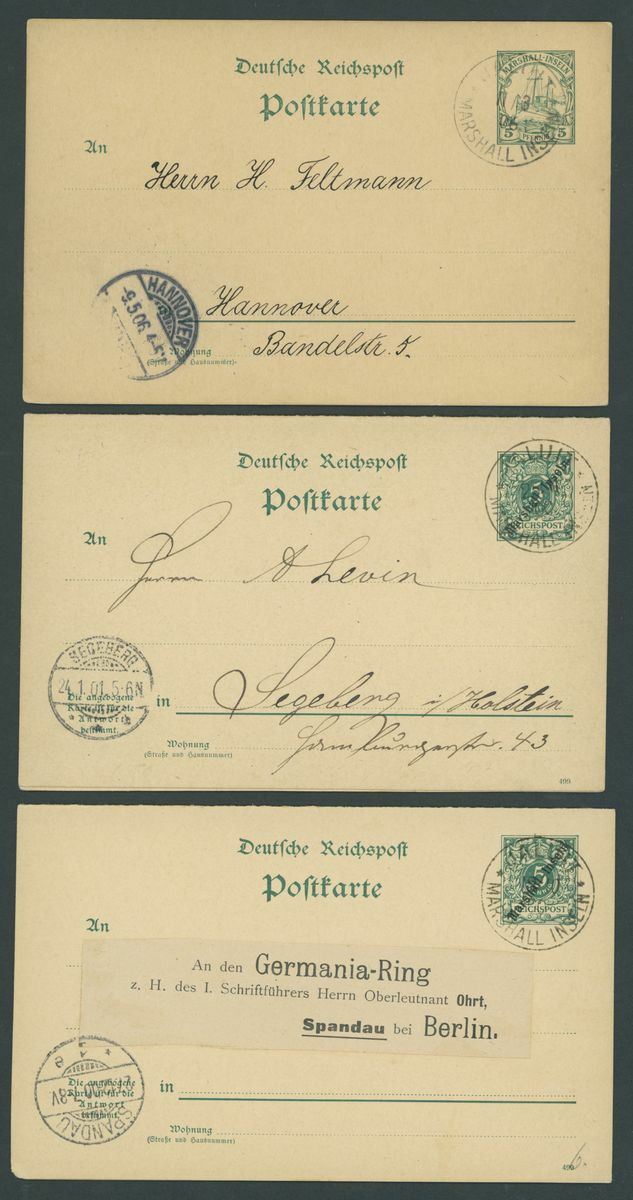 Deutsche Reichspost
Postkarte
MARSHALL-INSELN
5 PFENNIG 5
MARSHALL INSELN
An
Herrn H. Feltmann
HANNOVER
-9.5.06.4-5N
Hannover
Wohnung
(Straße und Hausnummer)
Bandelstr. 5.
Deutsche Reichspost
Postkarte
JALUIT
MARSHALL INSELN
5
Marshall-Inseln
REICHSPOST
An
Herrn A Levin
SEGEBERG
24.1.01.5-6N
Die angebogene
Karte ist für die
Antwort
bestimmt.
in
Segeberg i/Holstein
Wohnung
(Straße und Hausnummer)
Hamburgerstr. 43
499
Deutsche Reichspost
Postkarte
JALUIT
MARSHALL INSELN
5
Marshall-Inseln
REICHSPOST
An
An den Germania-Ring
z. H. des I. Schriftführers Herrn Oberleutnant Ohrt,
Spandau bei Berlin.
SPANDAU
Die angebogene
Karte ist für die
Antwort
bestimmt.
in
Wohnung
(Straße und Hausnummer)
499